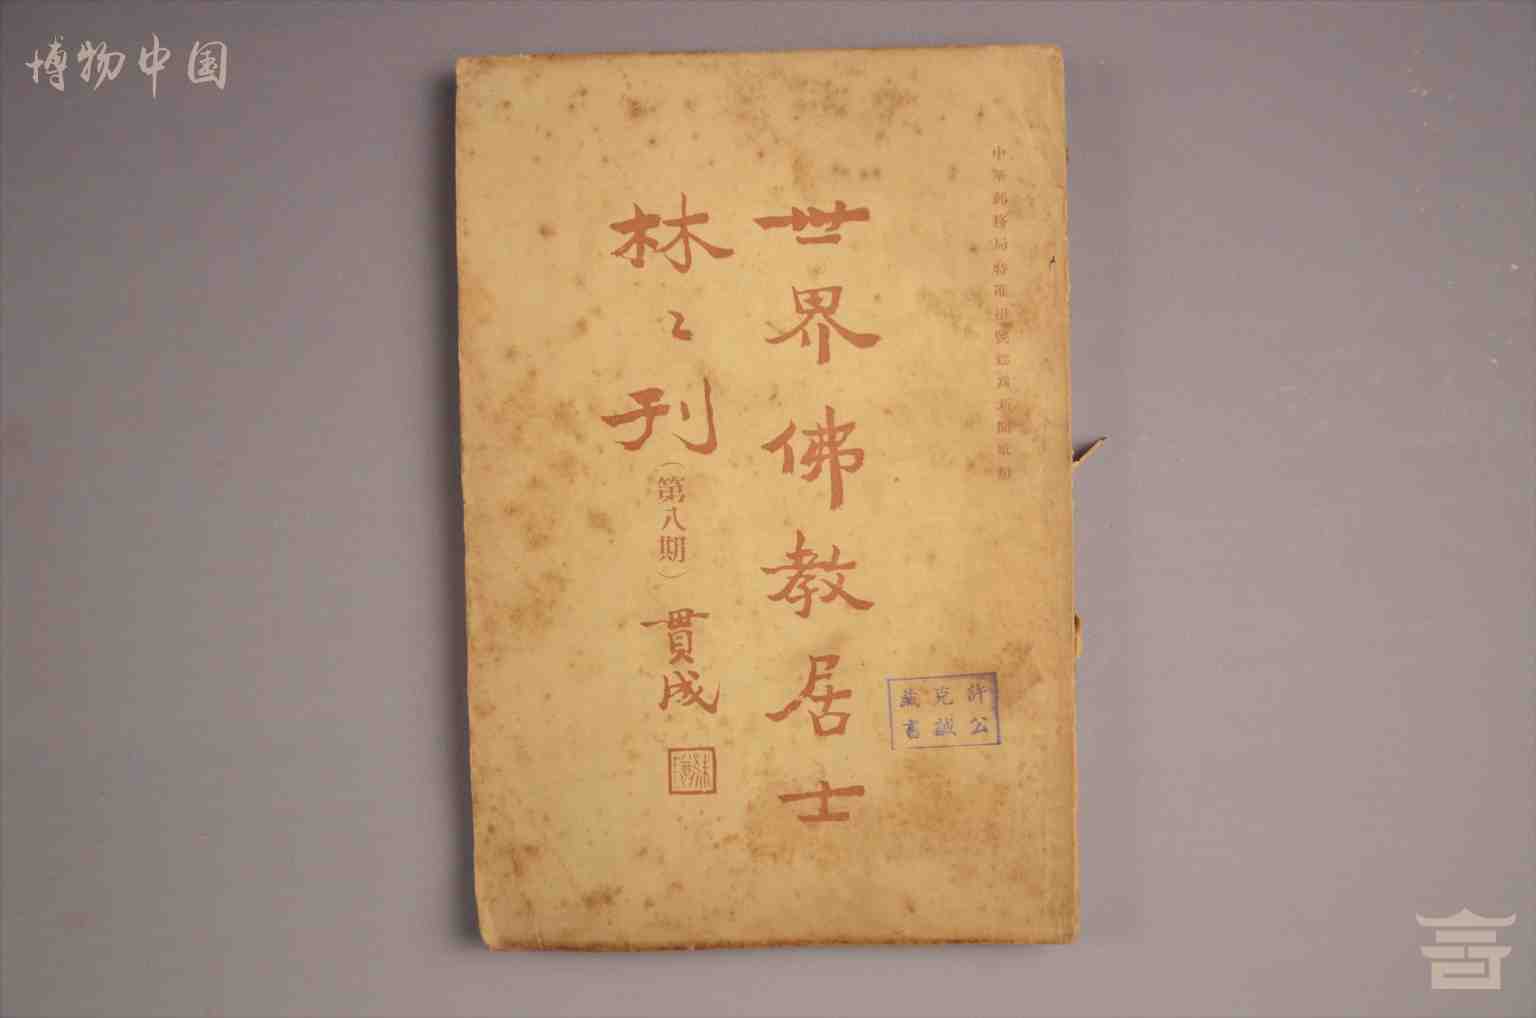 博物中国
中華郵務局特准掛號認爲新聞紙類
世界佛教居士
林〻刊
（第八期）
貫成
許公
克誠
藏書